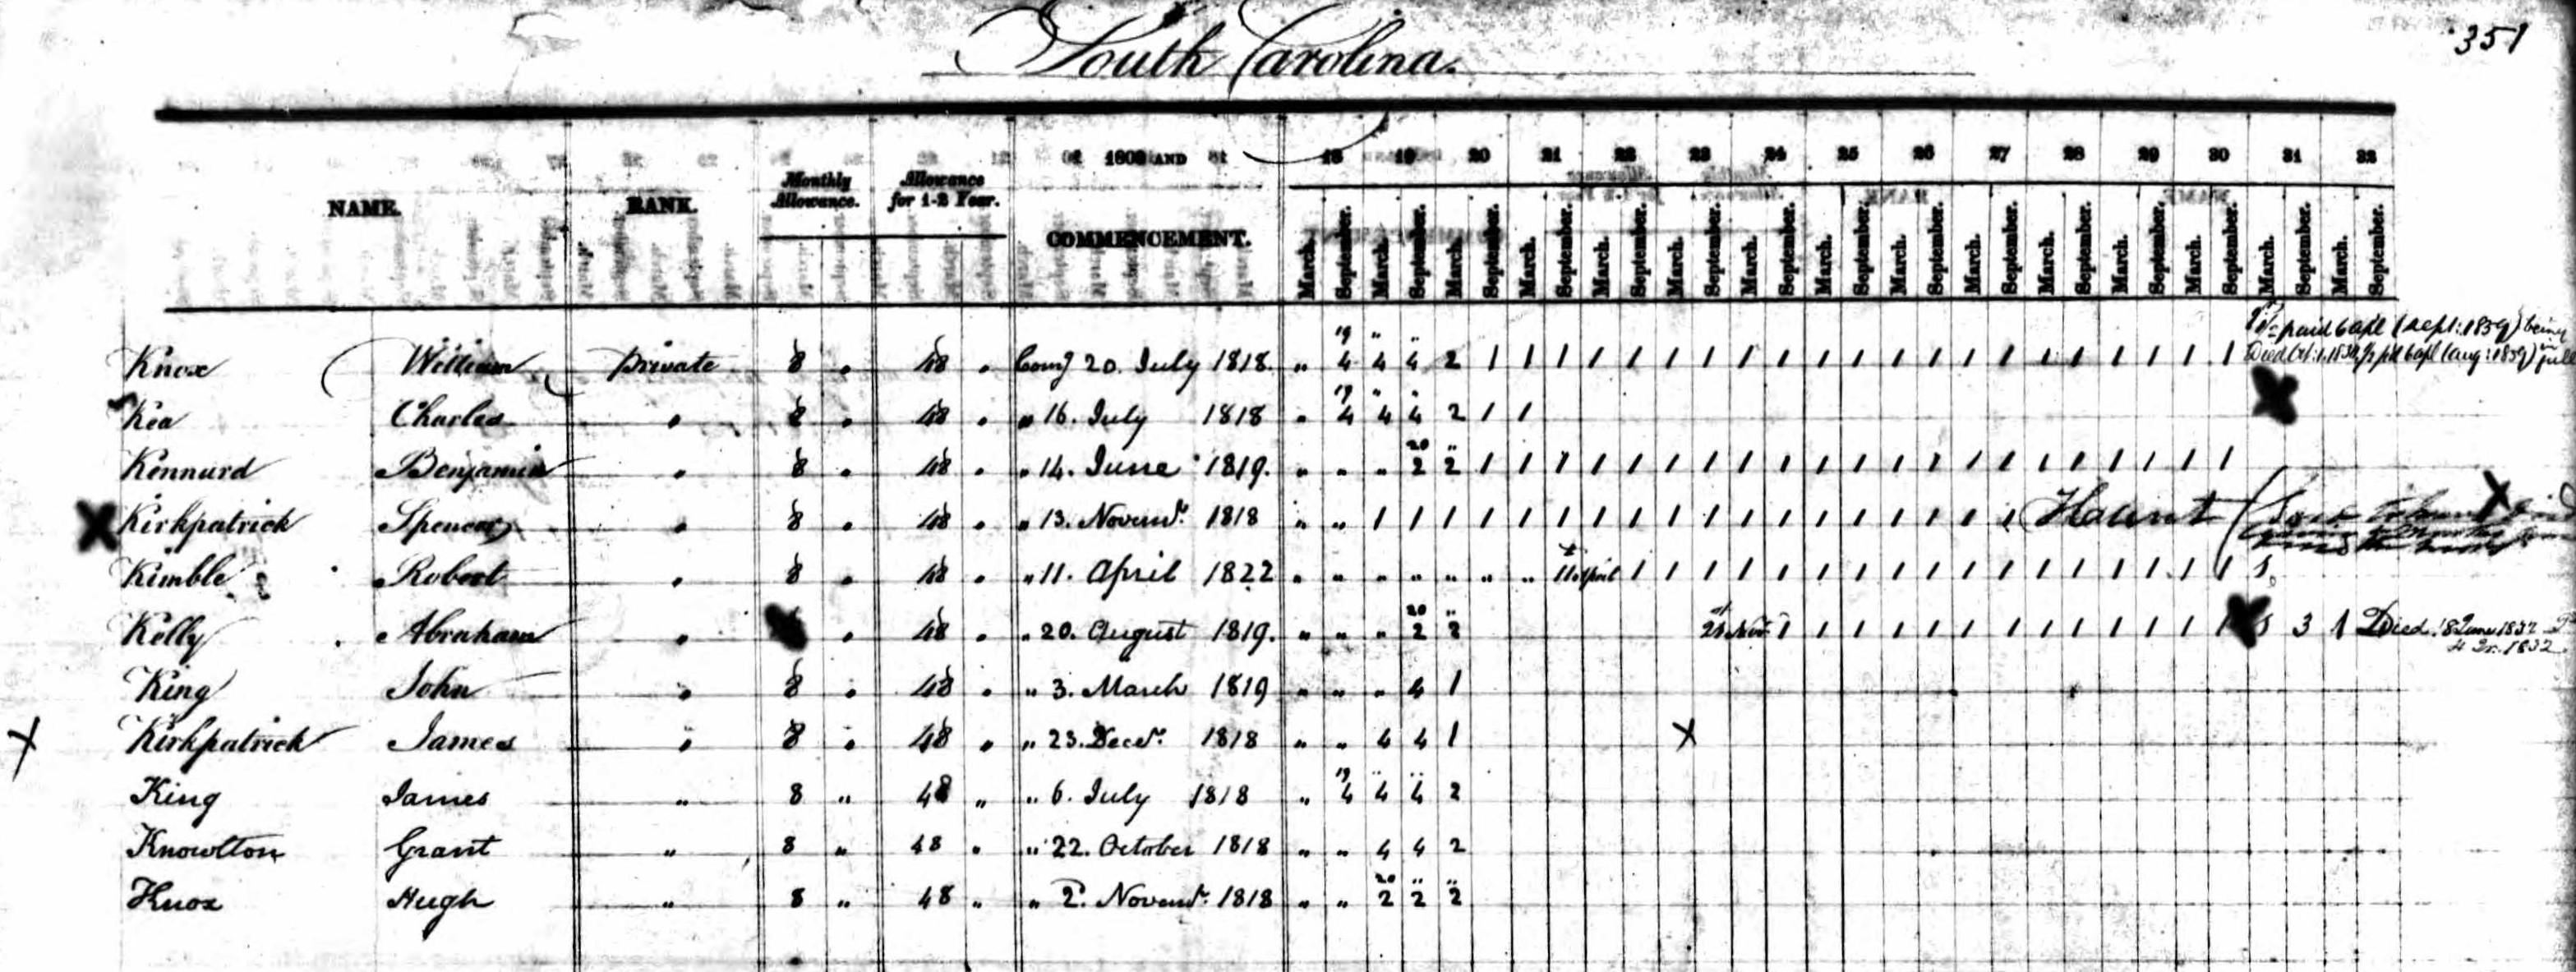 351
South Carolina.
NAME. RANK. Monthly Allowance. Allowance for 1-2 Year. 1800 AND COMMENCEMENT. 18 19 20 21 22 23 24 25 26 27 28 29 30 31 32
March. September. March. September. March. September. March. September. March. September. March. September. March. September. March. September. March. September. March. September. March. September. March. September. March. September. March. September. March. September.
paid 6 apl (sept: 1839) being
Knox William private 8 " 48 " Com'g 20. July 1818. " 19 4 " 4 " 4 2 1 1 1 1 1 1 1 1 1 1 1 1 1 1 1 1 1 1 1 1 1 Died
Kea Charles " 8 " 48 " " 16. July 1818 " 19 4 " 4 " 4 2 1 1
Kennard Benjamin " 8 " 48 " " 14. June 1819. " " " 20 2 " 2 1 1 1 1 1 1 1 1 1 1 1 1 1 1 1 1 1 1 1 1 1
X Kirkpatrick Spencer " 8 " 48 " " 13. Novemr. 1818 " " 1 1 1 1 1 1 1 1 1 1 1 1 1 1 1 1 1 1 X
Kimble Robert " 8 " 48 " " 11. April 1822 " " " " " " " 11. April 1 1 1 1 1 1 1 1 1 1 1 1 1 1 1 1 1 1
Kelly Abraham " " 48 " " 20. August 1819. " " " 20 2 " 2 1 1 1 1 1 1 1 1 1 1 1 1 1 3 1 Died 18 June 1832
4 Qr. 1832
King John " 8 " 48 " " 3. March 1819 " " " 4 1
X Kirkpatrick James " 8 " 48 " " 23. Decer. 1818 " " 4 4 1 X
King James " 8 " 48 " " 6. July 1818 " 19 4 " 4 " 4 2
Knowlton Grant " 8 " 48 " " 22. October 1818 " " 4 4 2
Knox Hugh " 8 " 48 " " 2. Novemr. 1818 " " 20 2 " 2 " 2